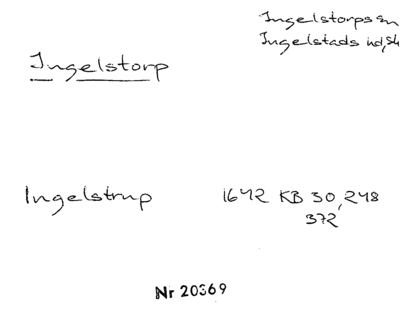 Ingelstorps sn
Ingelstads hd, Sk
Ingelstorp
Ingelstrup 1642 KB 30, 248
372
Nr 20369